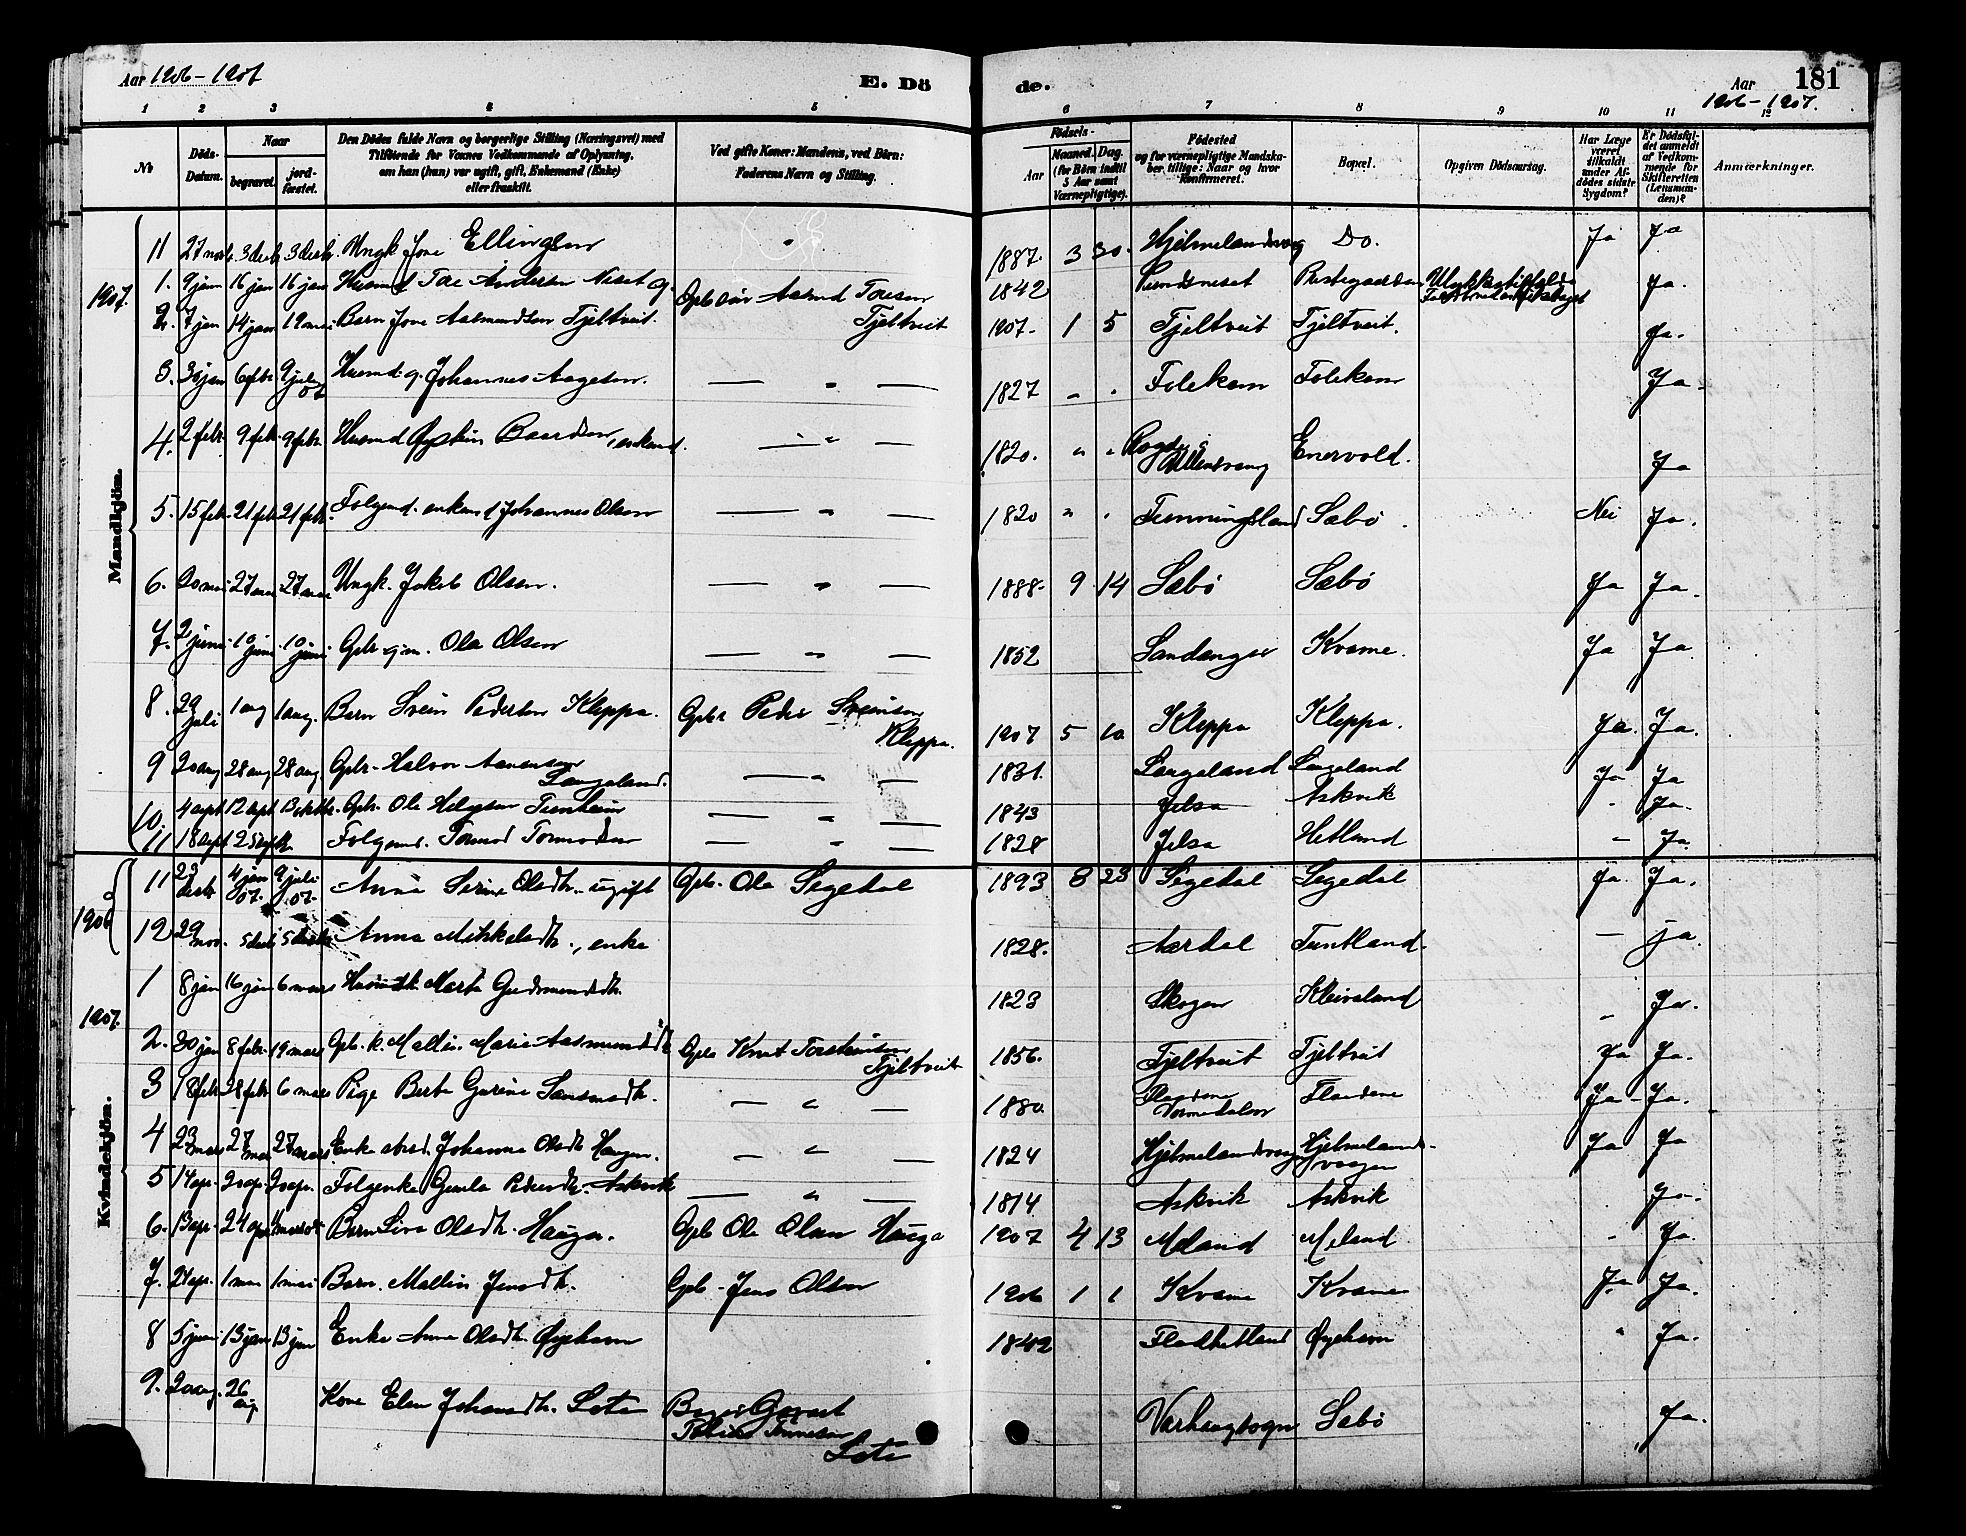 Aar 1906-1907
E. Dö
de.
Aar 181
1906-1907.
1 2 3 4 5 6 7 8 9 10 11 12
No
Döds-Datum.
Naar
begravet.
jord-fæstet.
Den Dödes fulde Navn og borgerlige Stilling (Næringsvei) med
Tilföiende for Voxnes Vedkommende af Oplysning,
om han (hun) var ugift, gift, Enkemand (Enke)
eller fraskilt.
Ved gifte Koner: Mandens, ved Börn:
Faderens Navn og Stilling.
Födsels-
Aar
Maaned. Dag.
(for Börn indtil
5 Aar samt
Værnepligtige).
Födested
og for værnepligtige Mandska-
ber tillige: Naar og hvor
Konfirmeret.
Bopæl.
Opgiven Dödsaarsag.
Har Læge
været
tilkaldt
under Af-
dödes sidste
Sygdom?
Er Dödsfal-
det anmeldt
af Vedkom-
mende for
Skifteretten
(Lensman-
den)?
Anmærkninger.
Mandkjön.
11 27 nov. 3 desb. 3 desb. Ungk Jone Ellingsen 1887. 3 30. Hjelmelandsvaag Do. Ja Ja
1907. 1. 9 jan 16 jan 16 jan Husmd Tore Andersen Neset g. 1842 Sundsneset Prestegaarden Ulykkestilfælde Ja.
2. 7 jan 14 jan 19 mai Barn Jone Aasmundsen Tjeltveit. Gbr Aasmd Toresen Tjeltveit 1907. 1 5 Tjeltveit Tjeltveit. Ja.
3. 30 jan 6 febr 9 july 07 Husmd. g. Johannes Aagesen. — " — 1827 Folekam Folekam Ja.
4. 2 febr. 9 feb. 9 febr. Husmd Øystein Baardsen, enkemd. — " — 1820. " " Ullensvang Enervold. Ja
5. 15 feb. 21 feb. 21 feb. Folgemd. enkemd Johannes Olsen — " — 1820 " " Funningsland Sæbø. Nei Ja.
6. 20 mai 27 mai 27 mai Ungk. Jakob Olsen. — " — 1888. 9 14 Sæbø Sæbø Ja Ja.
7. 2 juni 10 juni 10 juni Gbr gm. Ola Olsen — " — 1852 Sandanger Kvame. Ja Ja.
8. 29 juli 1 aug 1 aug. Barn Svein Pedersen Kleppa. Gbr Peder Sveinsen Kleppa. 1907 5 10 Kleppa Kleppa. Ja. Ja.
9 20 aug 28 aug 28 aug Gbr. Halvor Aanensen Langeland. — " — 1831. Langeland Langeland Ja Ja
10. 4 sept 12 sept 13 oktbr. Gbr. Ole Helgesen Tunheim — " — 1843 Jelsa Askvik - Ja.
11 18 sept 25 sept Folgemd. Tormod Tormodsen — " — 1828 Jelsa Hetland - Ja.
Kvindekjön.
1906 11 23 desbr 4 jan 07. 9 juli 07. Anna Serine Olsdtr. ugift Gbr. Ole Segedal 1893 8 23 Segedal Segedal Ja. Ja.
12 29 nov. 5 desb 5 desbr Anna Mikkelsdtr., enke 1828. Aardal Tuntland. — ja.
1907. 1 8 jan 16 jan 6 mars Marta Gudmundsdtr. 1823 Skogen Kleivaland - Ja.
2. 30 jan 8 febr. 19 mars Gbr. k. Malli. Marie Aasmundsdtr Gbr Knut Torsteinsen Tjeltveit 1856. Tjeltveit Tjeltveit Ja Ja.
3 18 febr 28 febr 6 mars Pige Berta Gurine Samsonsdtr. — " — 1880. Flaadene Vormedalen Flaadene Ja - Ja.
4 23 mars 27 mars 27 mars Enke Johanna Olsdtr Haugen. — " — 1824 Hjelmelandsvaag Hjelmelandsvaagen Ja Ja
5 14 apr. 20 apr. 20 apr. Folgenke Gunla Pedersdtr. Askvik — " — 1814 Askvik Askvik Ja.
6. 13 apr. 24 apr Barn Siva Olsdtr. Haugen. Gbr Ole Olsen Hauge 1907 4 13 Meland Meland - Ja.
7. 24 apr. 1 mai 1 mai Barn. Mallin Jensdtr. Gbr - Jens Olsen 1906 1 1 Kvame Kvame Ja. Ja.
8 5 jun 13 jun 13 jun Enke Anna Olsdtr. Øyehavn 1842 Fladhetland Øyehavn " Ja.
9. 20 aug. 26 aug Kone Elen Johansdtr. Sote Tønnesen Sote Varhaugsogn Sæbø Ja.